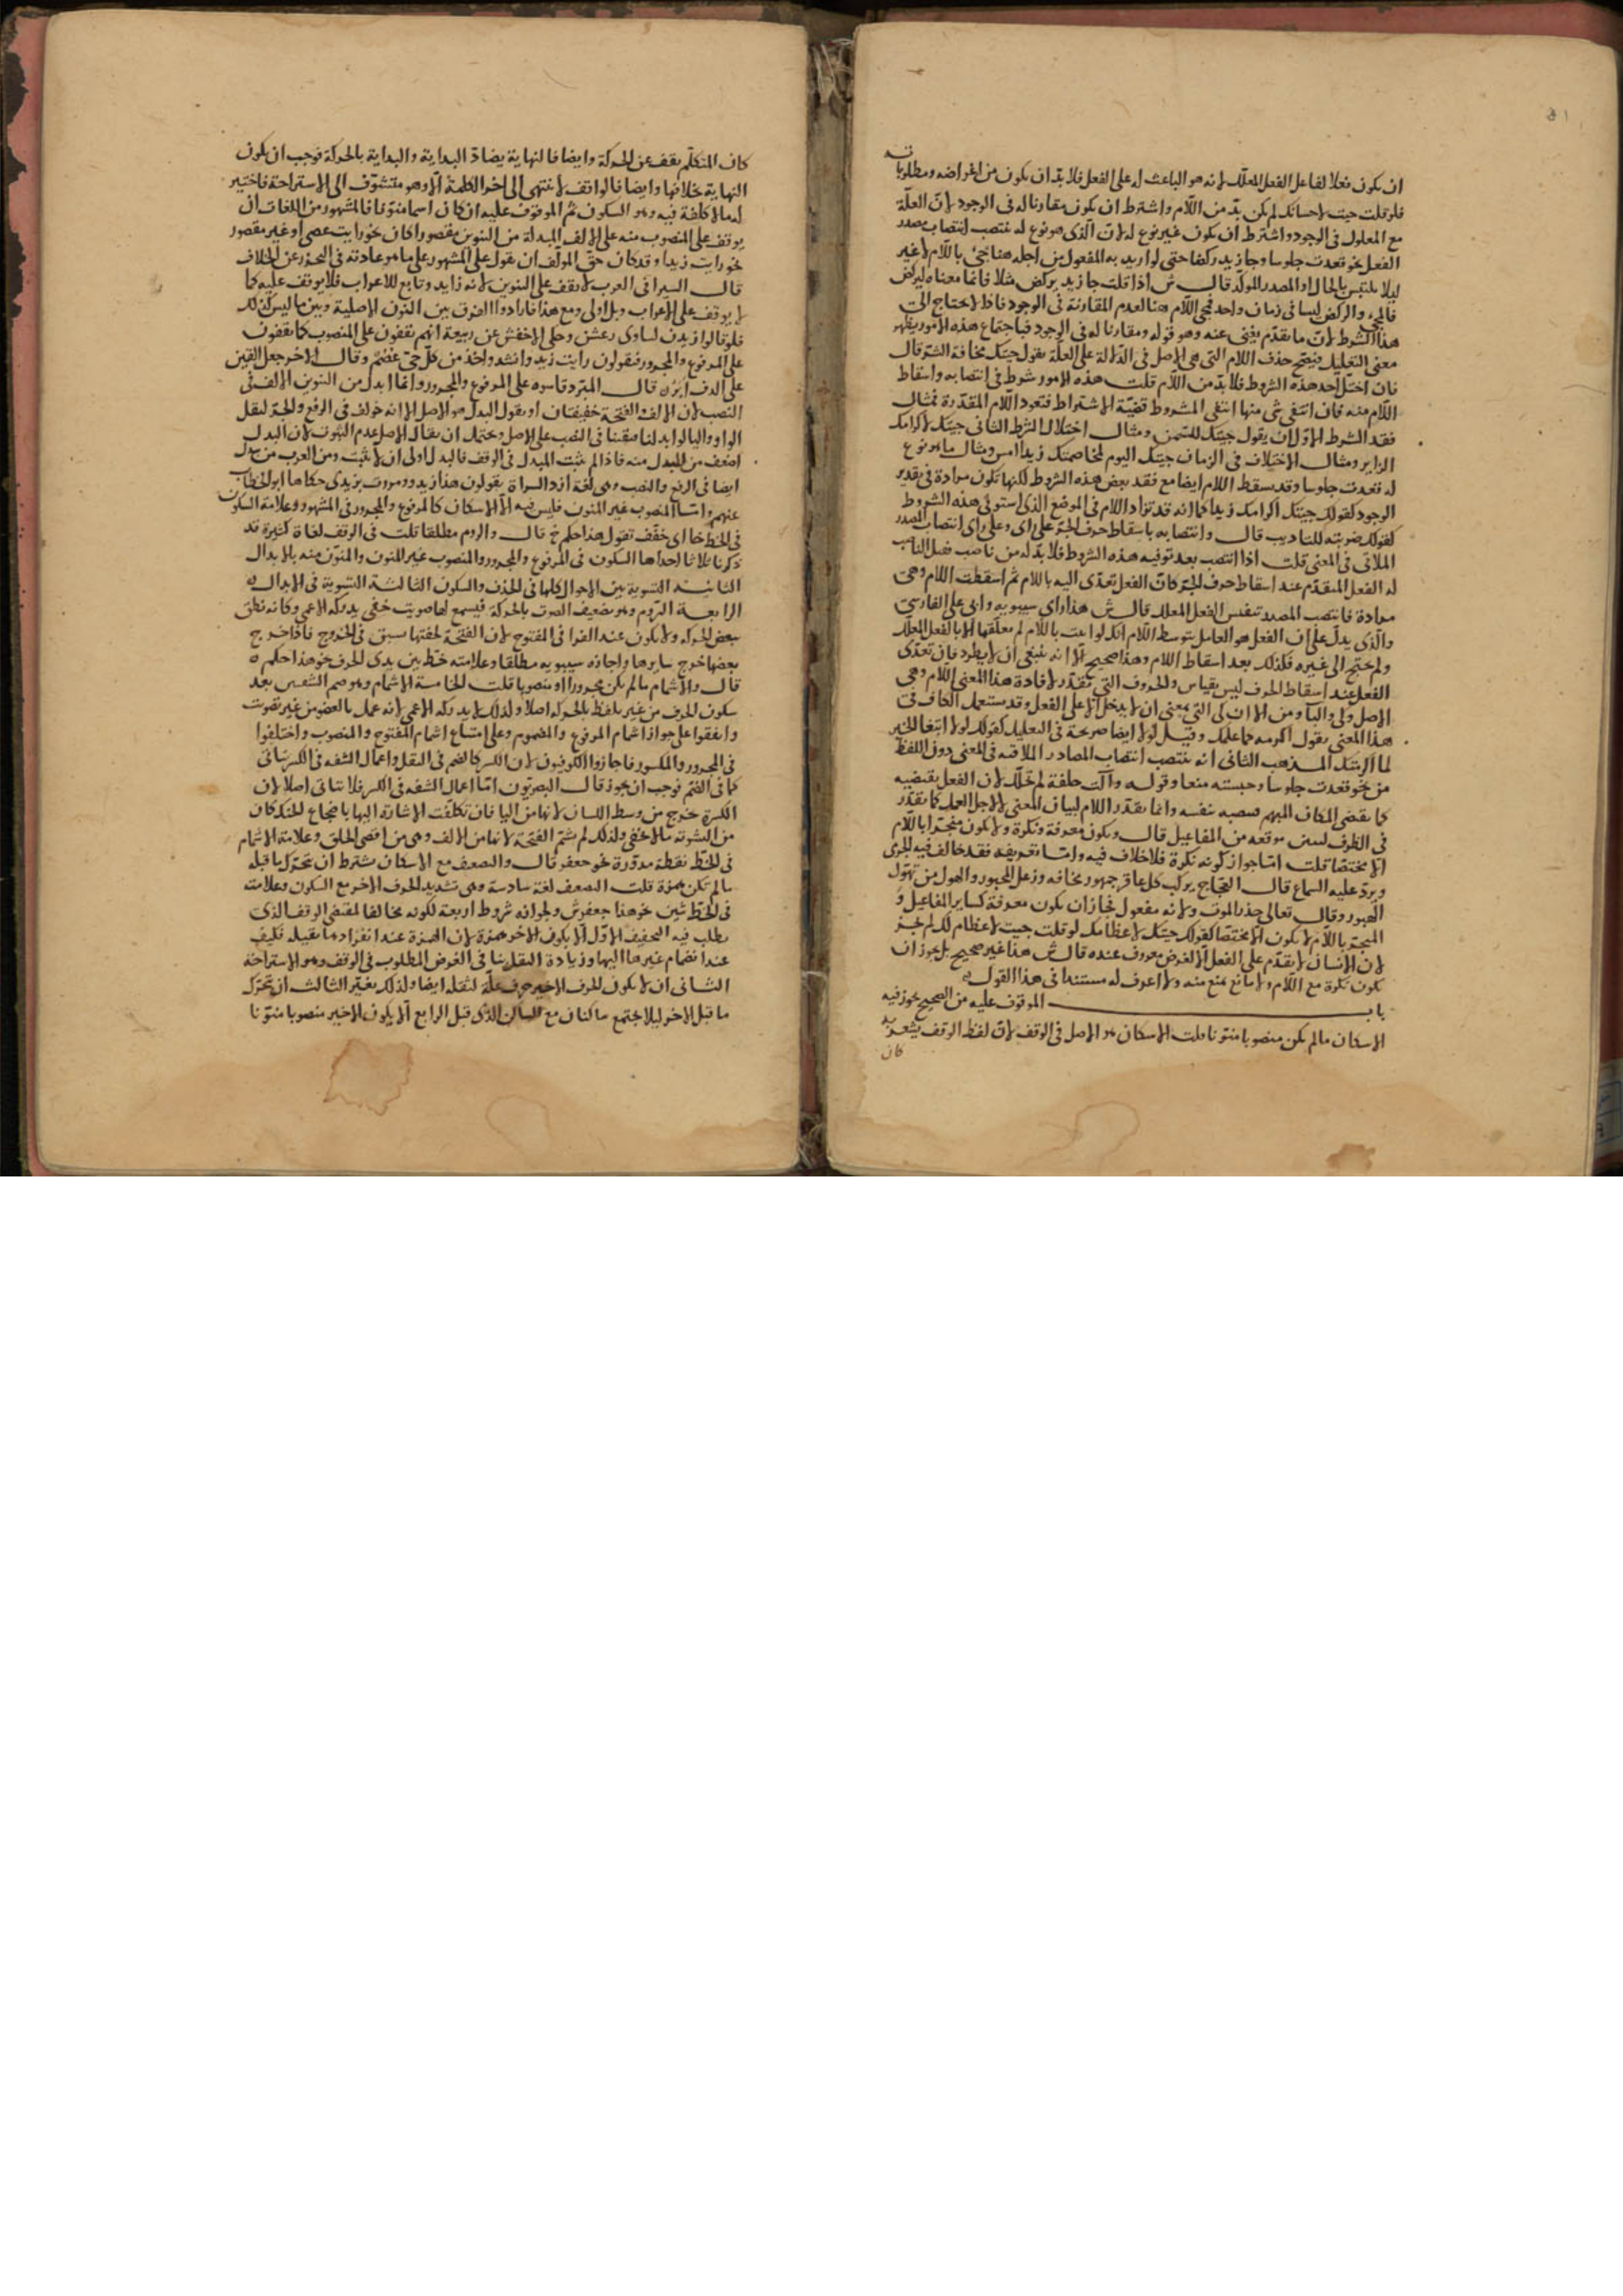 ان يكون فعلا لفاعل الفعل المعلل لانه هو الباعث له على الفعل فلا بد ان يكون من اغراضه ومطلوبا
فلو قلت جيت لاحسانك لم يكن بد من اللام واشترط ان يكون مقارنا له في الوجود لان العلة
مع المعلول في الوجود واشترط ان يكون غير نوع له لان الذي هو نوع له ينتصب انتصاب مصدر
الفعل نحو قعدت جلوسا وجا زيد ركضا حتى لو اريد به المفعول من اجله هنا يجئ باللام لا غير
ليلا يلتبس بالحال او المصدر المؤكد قال ش اذا قلت جا زيد يركض مثلا فانما معناه ليركض
فالمجي والركض ليسا في زمان واحد فجي اللام هنا لعدم المقارنة في الوجود فاذا لا يحتاج الى
هذا الشرط لان ما تقدم يغني عنه وهو قوله ومقارنا له في الوجود فباجتماع هذه الامور يظهر
معنى التعليل فيصح حذف اللام التي هي الاصل في الدلالة على العلة تقول جيتك مخافة الشر قال
فان اختل احد هذه الشروط فلا بد من اللام قلت هذه الامور شروط في انتصابه واسقاط
اللام منه فان انتفى شي منها انتفى المشروط قضية الاشتراط فتعود اللام المقدرة فمثال
فقد الشرط الاول ان يقول جيتك للسمن ومثال اختلال الشرط الثاني جيتك لاكرامك
الزاير ومثال الاختلاف في الزمان جيتك اليوم لمخاصمتك زيدا امس ومثال ما هو نوع
له قعدت جلوسا وقد يسقط اللام ايضا مع فقد بعض هذه الشروط لكنها تكون مرادة في تقدير
الوجود كقولك جيتك اكرامك زيدا كما انه قد تزاد اللام في الموضع الذي استوفى هذه الشروط
كقولك ضربته للتاديب قال وانتصابه باسقاط حرف الجر على راي وعلى راي انتصاب المصدر
الملاقي في المعنى قلت اذا انتصب بعد توفيه هذه الشروط فلا بد له من ناصب فقيل الناصب
له الفعل المتقدم عند اسقاط حرف الجر كان الفعل تعدى اليه باللام ثم اسقطت اللام وهي
مرادة فانتصب المصدر بنفس الفعل المعلل قال ش هذا راي سيبويه وابي علي الفارسي
والذي يدل على ان الفعل هو العامل بتوسط اللام انك لو اتيت باللام لم تعلقها الا بالفعل المعلل
ولم تحتج الى غيره فكذلك بعد اسقاط اللام وهذا صحيح الا انه ينبغي ان لا يطرد فان تعدى
الفعل عند اسقاط الحرف ليس بقياس والحروف التي تقدر لافادة هذا المعنى اللام وهي
الاصل وفي والبا ومن الا ان كي التي بمعنى ان لا يدخل الا على الفعل وقد يستعمل الكاف في
هذا المعنى تقول اكرمه كما علمك وقيل لولا ايضا صريحة في التعليل كقولك لولا ابتغا الخير
لما اتيتك المذهب الثاني انه ينتصب انتصاب المصادر الملاقية في المعنى دون اللفظ
من نحو قعدت جلوسا وحبسته منعا وقوله وآلت حلفة لم تحلل لان الفعل يقتضيه
كما يقتضي المكان المبهم فنصبه بنفسه وانما تقدر اللام لبيان المعنى لا لاجل العمل كما تقدر
في الظرف لتبين موقعه من المفاعيل قال ويكون معرفة ونكرة ولا يكون منجرا باللام
الا مختصا قلت اما جواز كونه نكرة فلا خلاف فيه واما تعريفه فقد خالف فيه الجرمي
ويرد عليه السماع قال العجاج يركب كل عاقر جمهور مخافة وزعل المحبور والهول من تهول
الهبور وقال تعالى حذر الموت ولانه مفعول فجاز ان يكون معرفة كساير المفاعيل و
المنجر باللام لا يكون الا مختصا كقولك جيتك لاعظامك لو قلت جيت لاعظام لك لم يجز
لان الانسان لا يقدم على الفعل الا لغرض معروف عنده قال ش هذا غير صحيح بل يجوز ان
يكون نكرة مع اللام ولا مانع يمنع منه ولا اعرف له مستندا في هذا القول
باب الموقوف عليه من الصحيح يجوز فيه
الاسكان ما لم يكن منصوبا منونا قلت الاسكان هو الاصل في الوقف لان لفظ الوقف يشعر به
كان
كان المتكلم يقف عن الحركة وايضا فالنهاية يضاد البداية والبداية بالحركة فوجب ان يكون
النهاية خلافها وايضا فالواقف لا ينتهي الى اخر الكلمة الا وهو متشوف الى الاستراحة فاختير
له ما لا كلفة فيه وهو السكون ثم الموقوف عليه ان كان اسما منونا فالمشهور من اللغات ان
يوقف على المنصوب منه على الالف المبدلة من التنوين مقصورا كان نحو رايت عصى او غير مقصور
نحو رايت زيدا وقد كان حق المولف ان يقول على المشهور على ما هو عادته في التحرز عن الخلاف
قال السيرافي العرب لا يقف على التنوين لانه زايد وتابع للاعراب فلا يوقف عليه كما
لا يوقف على الاعراب وبل اولى ومع هذا فارادوا الفرق بين النون الاصلية وبين ما ليس كذلك
فلو قالوا زيدن لساوى رعشن وحكى الاخفش عن ربيعة انهم يقفون على المنصوب كما يقفون
على المرفوع والمجرور فيقولون رايت زيد وانشد واخذ من كل حي عصم وقال الاخر جعل القين
على الدف ابر قال المبرد وقاسوه على المرفوع والمجرور وانما ابدل من التنوين الالف في
النصب لان الالف والفتحة خفيفتان او يقول البدل هو الاصل الا انه خولف في الرفع والجر لثقل
الواو واليا لو ابدلنا فبقينا في النصب على الاصل ويحتمل ان يقال الاصل عدم الثبوت لان البدل
اضعف من المبدل منه فاذا لم يثبت المبدل في الوقف فالبدل اولى ان لا يثبت ومن العرب من يبدل
ايضا في الرفع والنصب وهي لغة ازد السراة يقولون هذا زيدو ومررت بزيدي حكاها ابو الخطاب
عنهم واما المنصوب غير المنون فليس فيه الا الاسكان كالمرفوع والمجرور في المشهور وعلامة السكون
في الخط خا اي خفف تقول هذا حكم خ قال والروم مطلقا قلت في الوقف لغاة كثيرة قد
ذكرنا ثلاثا احداها السكون في المرفوع والمجرور والمنصوب غير المنون والمنون منه بالابدال
الثانية التسوية بين الاحوال كلها في الحذف والسكون الثالثة التسوية في الابدال
الرابعة الروم وهو تضعيف الصوت بالحركة فيسمع لها صويت خفي يدركه الاعمى وكانه نطق
ببعض الحركة ولا يكون عند الفرا في المفتوح لان الفتحة لخفتها سبق في الخروج فاذا خرج
بعضها خرج سايرها واجازه سيبويه مطلقا وعلامته خط بين يدي الحرف نحو هذا حكم
قال والاشمام ما لم يكن مجرورا او منصوبا قلت الخامسة الاشمام وهو ضم الشفتين بعد
سكون الحرف من غير تلفظ بالحركة اصلا ولذلك لا يدركه الاعمى لانه عمل بالعضو من غير تصويت
واتفقوا على جواز اشمام المرفوع والمضموم وعلى امتناع اشمام المفتوح والمنصوب واختلفوا
في المجرور والمكسور فاجازوا الكوفيون لان الكسر كالضم في الثقل واعمال الشفه في الكسر يتاتى
كما في الضم فوجب ان يجوز قال البصريون اما اعمال الشفه في الكسر فلا يتاتى اصلا لان
الكسرة تخرج من وسط اللسان لانها من اليا فان تكلفت الاشارة اليها باضجاع الحنك كان
من التشويه ما لا يخفى ولذلك لم يشم الفتحة لانها من الالف وهي من اقصى الحلق وعلامة الاشمام
في الخط نقطة مدورة نحو جعفر قال والتضعيف مع الاسكان بشرط ان يتحرك ما قبله
ما لم يكن همزة قلت التضعيف لغة سادسة وهي تشديد الحرف الاخر مع السكون وعلامته
في الخط شين نحو هذا جعفرش ولجوازه شروط اربعة لكونه مخالفا لمقتضى الوقف الذي
يطلب فيه التخفيف الاول الا يكون الاخر همزة لان الهمزة عند انفرادها ثقيلة فكيف
عند انضمام غيرها اليها وزيادة الثقل ينافي الغرض المطلوب في الوقف وهو الاستراحة
الثاني ان لا يكون الحرف الاخير حرف علة لثقله ايضا ولذلك يغير الثالث ان يتحرك
ما قبل الاخر ليلا يجتمع ساكنان مع الساكن الذي قبل الرابع الا يكون الاخير منصوبا منونا